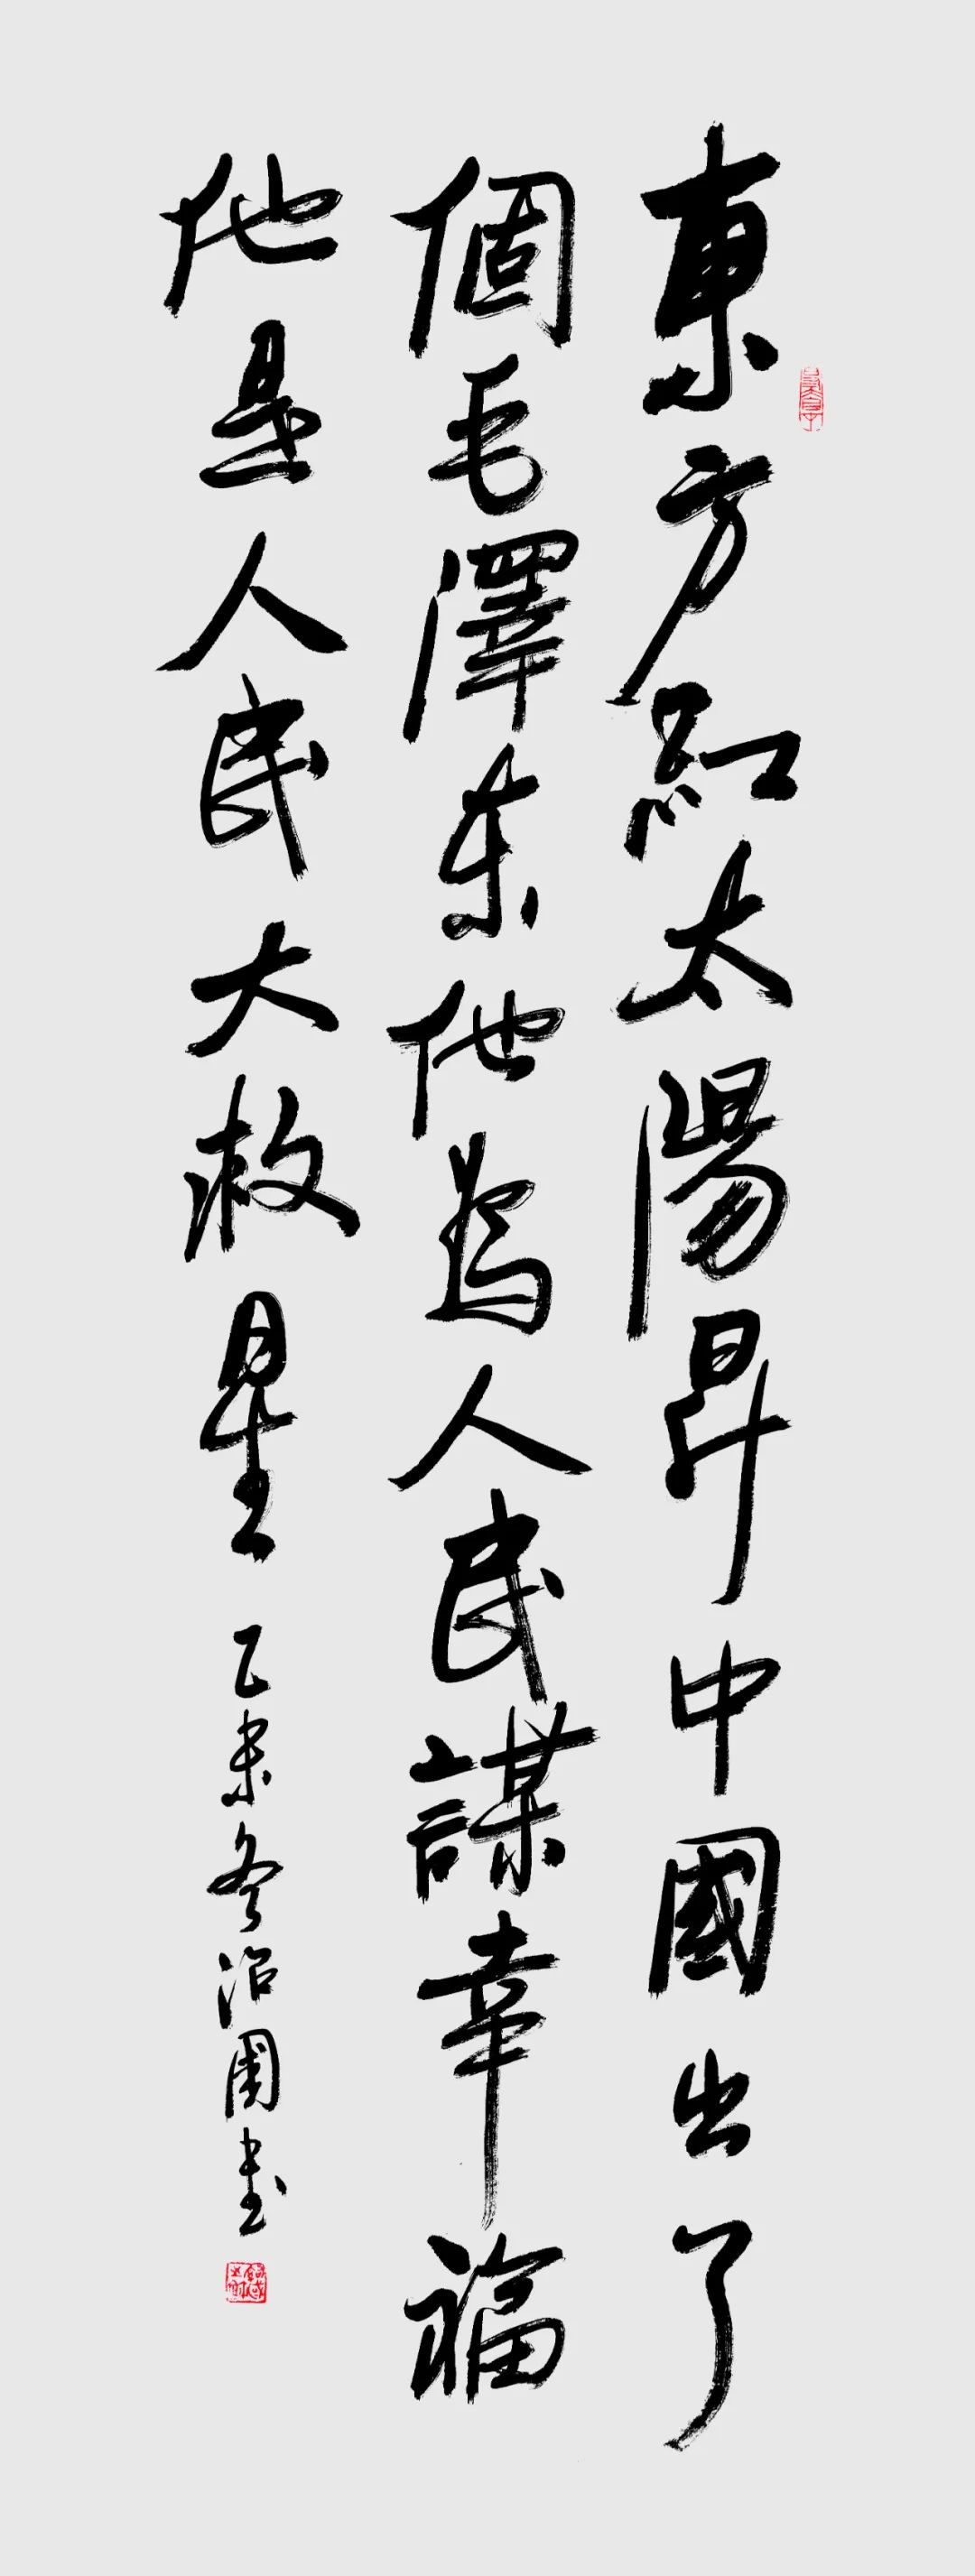 東方紅太陽昇中國出了
個毛澤东他為人民謀幸福
他是人民大救星 乙未冬治国书